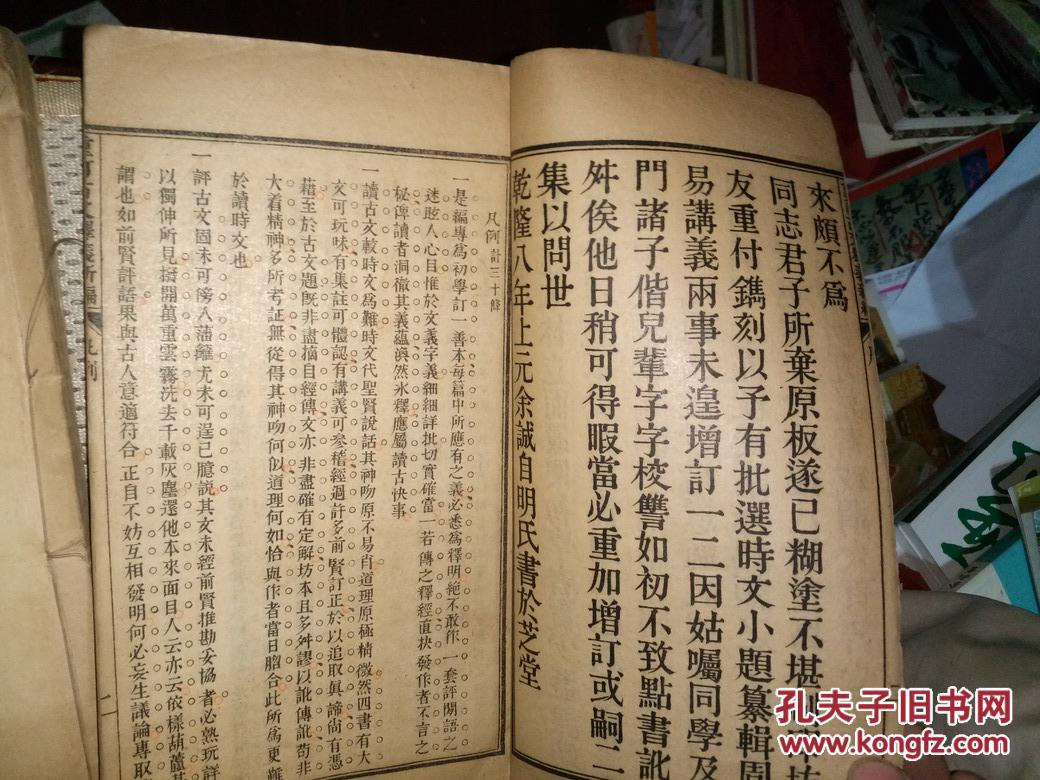 來頗不爲
同志君子所棄原板遂已糊塗不堪
友重付鐫刻以予有批選時文小題纂輯周
易講義兩事未遑增訂一二因姑囑同學及
門諸子偕兒輩字字校讐如初不致點畫訛
舛俟他日稍可得暇當必重加增訂或嗣二
集以問世
乾隆八年上元余誠自明氏書於芝堂
凡例計三十條
一是編專爲初學訂一善本每篇中所應有之義必悉爲釋明絕不敢作一套評閒語之
迷眩人心目惟於文義字義細細詳批切實確當一若傳之釋經直抉發作者不言之
秘俾讀者洞徹其義蘊渙然氷釋應屬讀古快事
一讀古文較時文爲難時文代聖賢說話其神吻原不易肖道理原極精微然四書有大
文可玩味有集註可體認有講義可參稽經過許多前賢訂正於以追取眞諦尚有憑
藉至於古文題旣非盡摘自經傳文亦非盡確有定解坊本且多舛謬以訛傳訛苟非
大着精神多所考証無從得其神吻何似道理何如恰與作者當日脗合此所爲更難
於讀時文也
一評古文固未可傍人藩籬尤未可逞已臆說其文未經前賢推勘妥協者必熟玩詳
以獨伸所見撥開萬重雲霧洗去千載灰塵還他本來面目人云亦云依樣葫蘆
謂也如前賢評語果與古人意適符合正自不妨互相發明何必妄生議論專取
釋義新編
凡例
一
孔夫子旧书网
www.kongfz.com